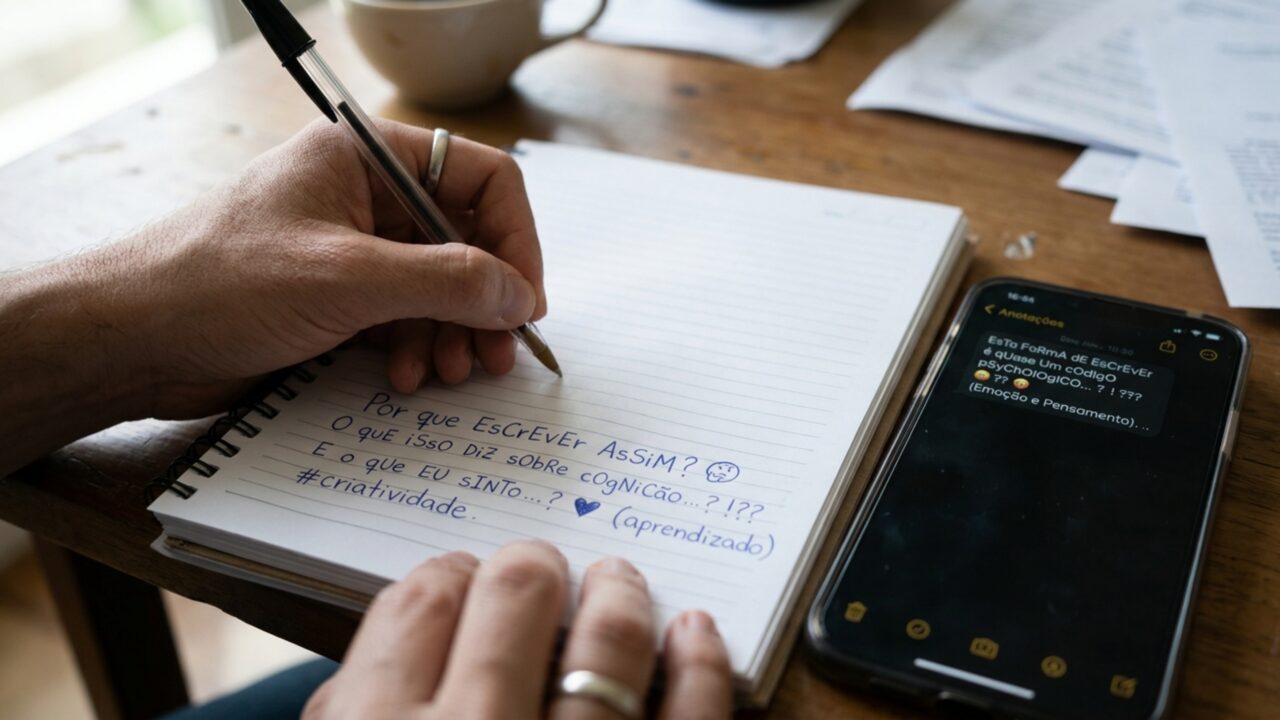 Por que EsCrEvEr AsSiM? 🤔
O quE iSso DiZ sObRe cOgNiCão...?!??
E o qUe EU sINTo...? 💙 (aprendizado)
#criatividade.
16:54
Anotações
EsTa FoRmA dE EsCrEvEr
é qUase Um cÓdIgO
pSyChOlOgICO... ? ! ???
?? 
(Emoção e Pensamento). ..